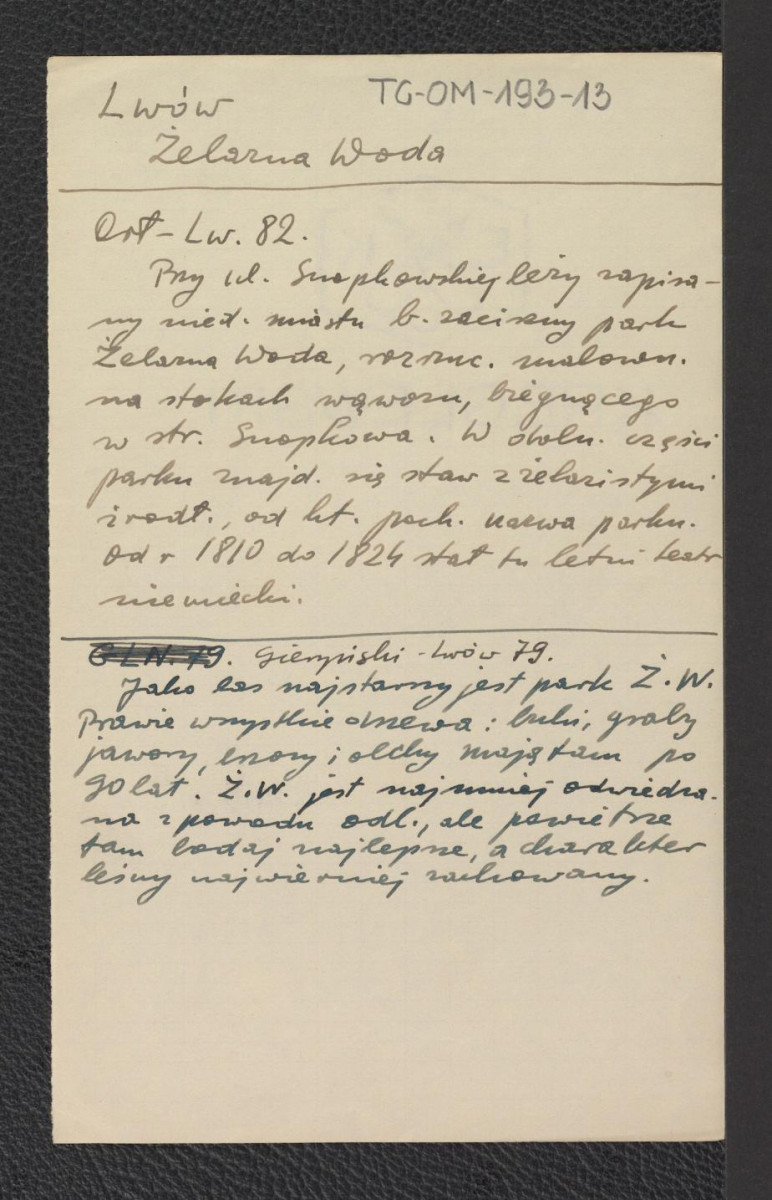 Lwów
TG-OM-193-13
Żelazna Woda
Orł-Lw. 82.
Przy ul. Snopkowskiej leży zapisa-
ny nied. miastu b. zaciszny park
Żelazna Woda, rozrzuc. malown.
na stokach wąwozu, biegnącego
w str. Snopkowa. W doln. części
parku znajd. się staw z żelazistymi
źródł., od kt. poch. nazwa parku.
Od r 1810 do 1824 stał tu letni teatr
niemiecki.
GLN. 79. Gierpiski - Lwów 79.
Jako las najstarszy jest park Ż.W.
Prawie wszystkie drzewa: buki, graby
jawory, brzozy i olchy mają tam po
90 lat. Ż.W. jest najmniej odwiedza-
na z powodu odl., ale powietrze
tam bodaj najlepsze, a charakter
leśny najwierniej zachowany.